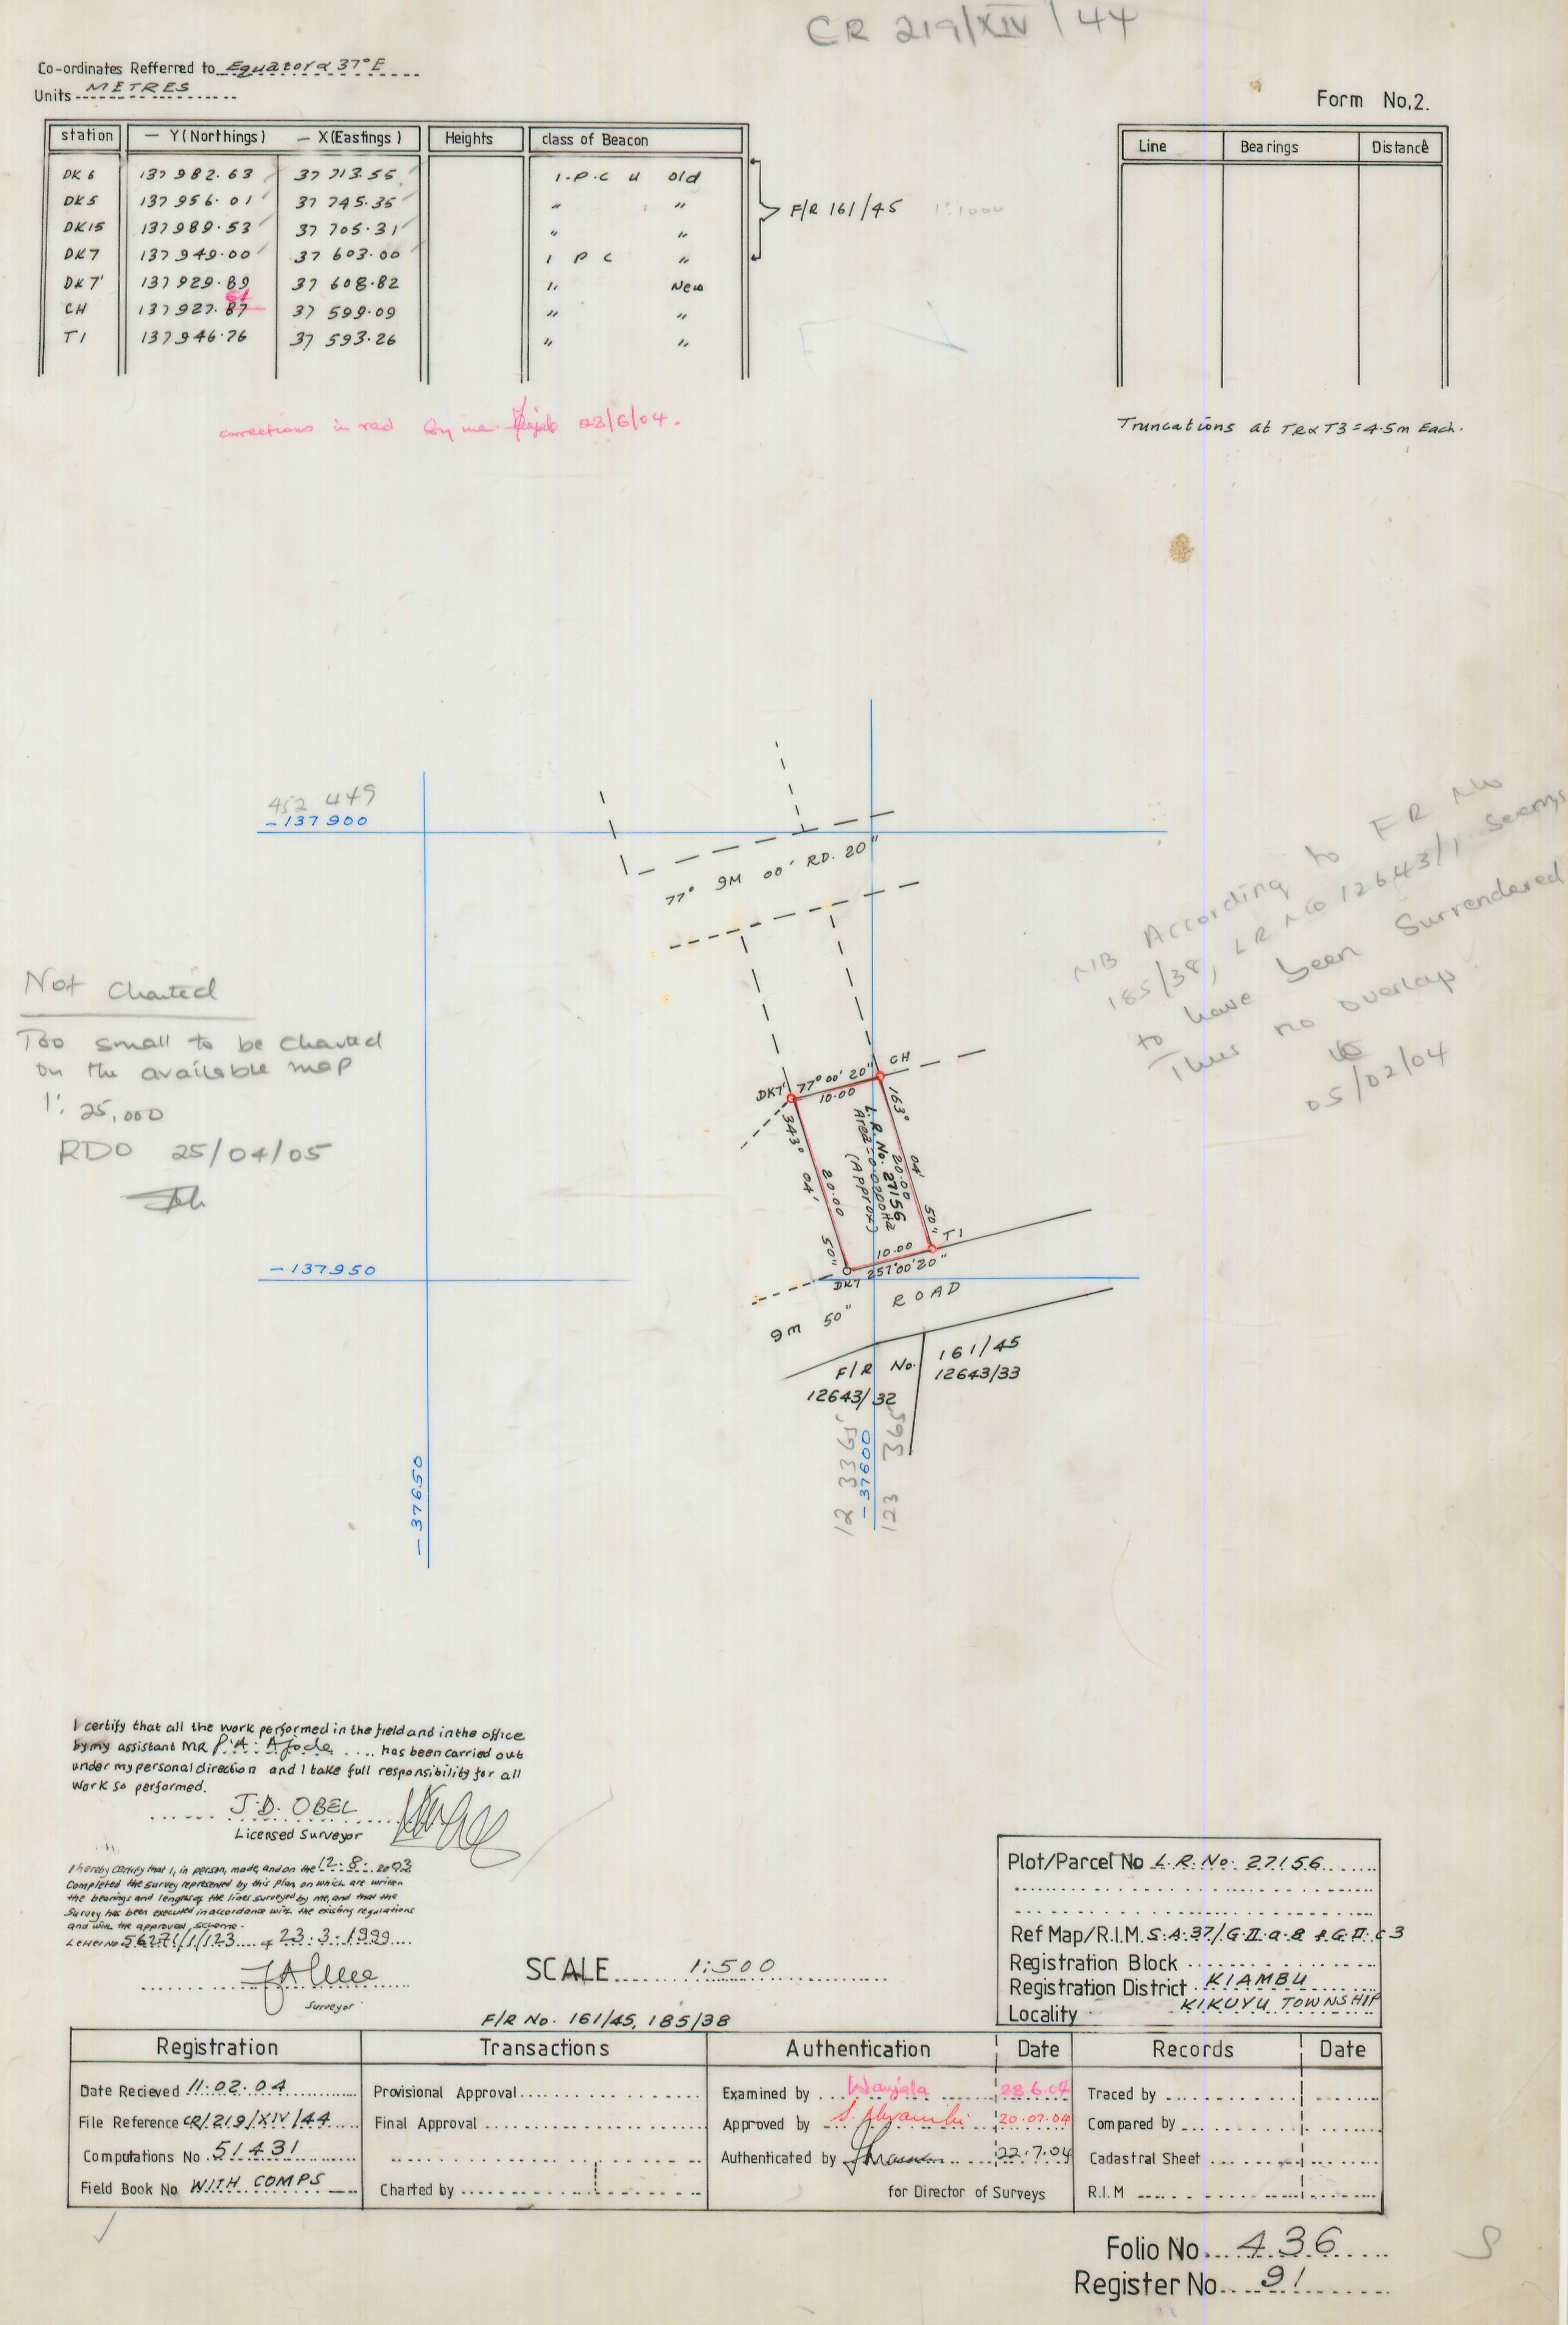 CR 219/XIV/44
Co-ordinates Refferred to Equator & 37°E
Units METRES
Form No.2.
station — Y (Northings) — X (Eastings) Heights class of Beacon
DK 6 137 982.63 37 713.55 I.P.C U old
DK5 137 956.01 37 745.35 " "
DK15 137 989.53 37 705.31 " "
DK7 137 949.00 37 603.00 I P C "
DK7' 137 929.89 37 608.82 " New
CH 137 927.87 51 37 599.09 " "
T1 137 946.76 37 593.26 " "
F/R 161/45 1:1000
Line Bearings Distance
corrections in red by me 28/6/04.
Truncations at T2 & T3 = 4.5m Each.
452 449
-137900
77° 9M 00' RD. 20"
NB According to FR No
185/38, LR No 12643/1 seems
to have been Surrendered
Thus no overlap
05/02/04
Not Charted
Too small to be charted
on the available map
1: 25,000
RDO 25/04/05
DK7' 77° 00' 20" CH
10.00
343° 04' 50"
20.00
L.R. No. 27156
Area = 0.0200Ha
(Approx)
163° 04' 50"
20.00
10.00 T1
DK7 257°00'20"
-137950
9m 50" ROAD
F/R No. 161/45
12643/32 12643/33
12 3365
-37600
123 365
-37650
I certify that all the work performed in the field and in the office
by my assistant MR P.A. Ajode has been carried out
under my personal direction and I take full responsibility for all
work so performed.
J.D. OBEL
Licensed Surveyor
I hereby certify that I, in person, made, and on the 12.8.2003
Completed the survey represented by this plan on which are written
the bearings and lengths of the lines surveyed by me, and that the
Survey has been executed in accordance with the existing regulations
and with the approved scheme.
Letter No 56271/1/123 of 23.3.1999
Surveyor
SCALE 1:500
F/R No. 161/45, 185/38
Plot/Parcel No L.R. No. 27156
Ref Map/R.I.M. S.A.37/G.II.a.8 & G.II.c3
Registration Block
Registration District KIAMBU
Locality KIKUYU TOWNSHIP
Registration Transactions Authentication Date Records Date
Date Recieved 11.02.04 Provisional Approval Examined by Wanjala 28.6.04 Traced by
File Reference CR/219/XIV/44 Final Approval Approved by 20.07.04 Compared by
Computations No 51431 Authenticated by 22.7.04 Cadastral Sheet
Field Book No WITH COMPS Charted by for Director of Surveys R.I.M
Folio No 436
Register No 91